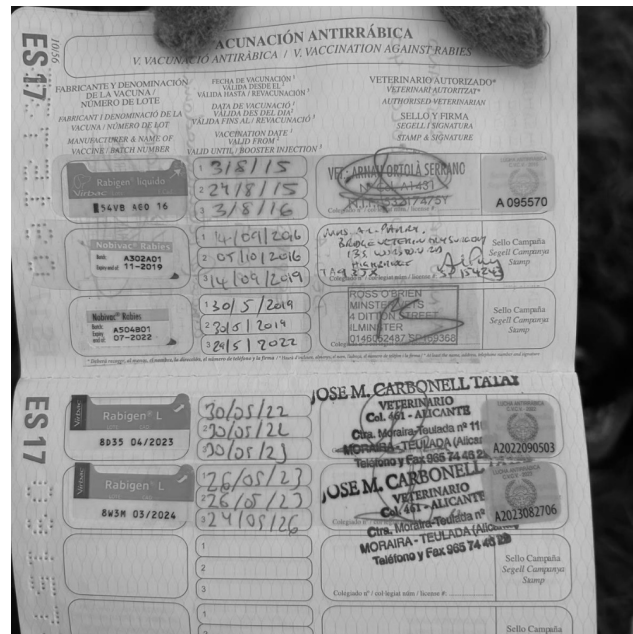 ES17
10/56
VACUNACIÓN ANTIRRÁBICA
V. VACUNACIÓ ANTIRÀBICA / V. VACCINATION AGAINST RABIES
FABRICANTE Y DENOMINACIÓN DE LA VACUNA / NÚMERO DE LOTE
FABRICANT I DENOMINACIÓ DE LA VACUNA / NÚMERO DE LOT
MANUFACTURER & NAME OF VACCINE / BATCH NUMBER
FECHA DE VACUNACIÓN ¹
VÁLIDA DESDE EL ²
VÁLIDA HASTA / REVACUNACIÓN ³
DATA DE VACUNACIÓ ¹
VÀLIDA DES DEL DIA ²
VÀLIDA FINS AL / REVACUNACIÓ ³
VACCINATION DATE ¹
VALID FROM ²
VALID UNTIL / BOOSTER INJECTION ³
VETERINARIO AUTORIZADO*
VETERINARI AUTORITZAT*
AUTHORISED VETERINARIAN
SELLO Y FIRMA
SEGELL I SIGNATURA
STAMP & SIGNATURE
Rabigen líquido
Virbac
54VB AGO 16
1 3/8/15
2 24/8/15
3 3/8/16
VET.: ARNAU ORTOLÀ SERRANO
A 095570
Nobivac® Rabies
A302A01
11-2019
1 14/09/2016
2 05/10/2016
3 14/09/2019
Sello Campaña
Segell Campanya
Stamp
Nobivac® Rabies
A504B01
07-2022
1 30/5/2019
2 30/5/2019
3 29/5/2022
ROSS O'BRIEN
MINSTER VETS
4 DITTON STREET
ILMINSTER
Sello Campaña
Segell Campanya
Stamp
ES17
Virbac
Rabigen® L
8D35 04/2023
30/05/22
2 30/05/22
30/05/23
JOSE M. CARBONELL TATAY
VETERINARIO
Col. 461 - ALICANTE
Ctra. Moraira-Teulada nº
MORAIRA - TEULADA
Teléfono y Fax 965 74 46
A2022090503
Virbac
Rabigen® L
8W3M 03/2024
1 26/05/23
2 26/05/23
3 24/05/26
JOSE M. CARBONELL
VETERINARIO
Col. 461 - ALICANTE
Ctra. Moraira-Teulada nº
MORAIRA - TEULADA
Teléfono y Fax 965 74 46
A2023082706
1
2
3
Colegiado nº / col·legiat núm / license #:
Sello Campaña
Segell Campanya
Stamp
1
2
Sello Campaña